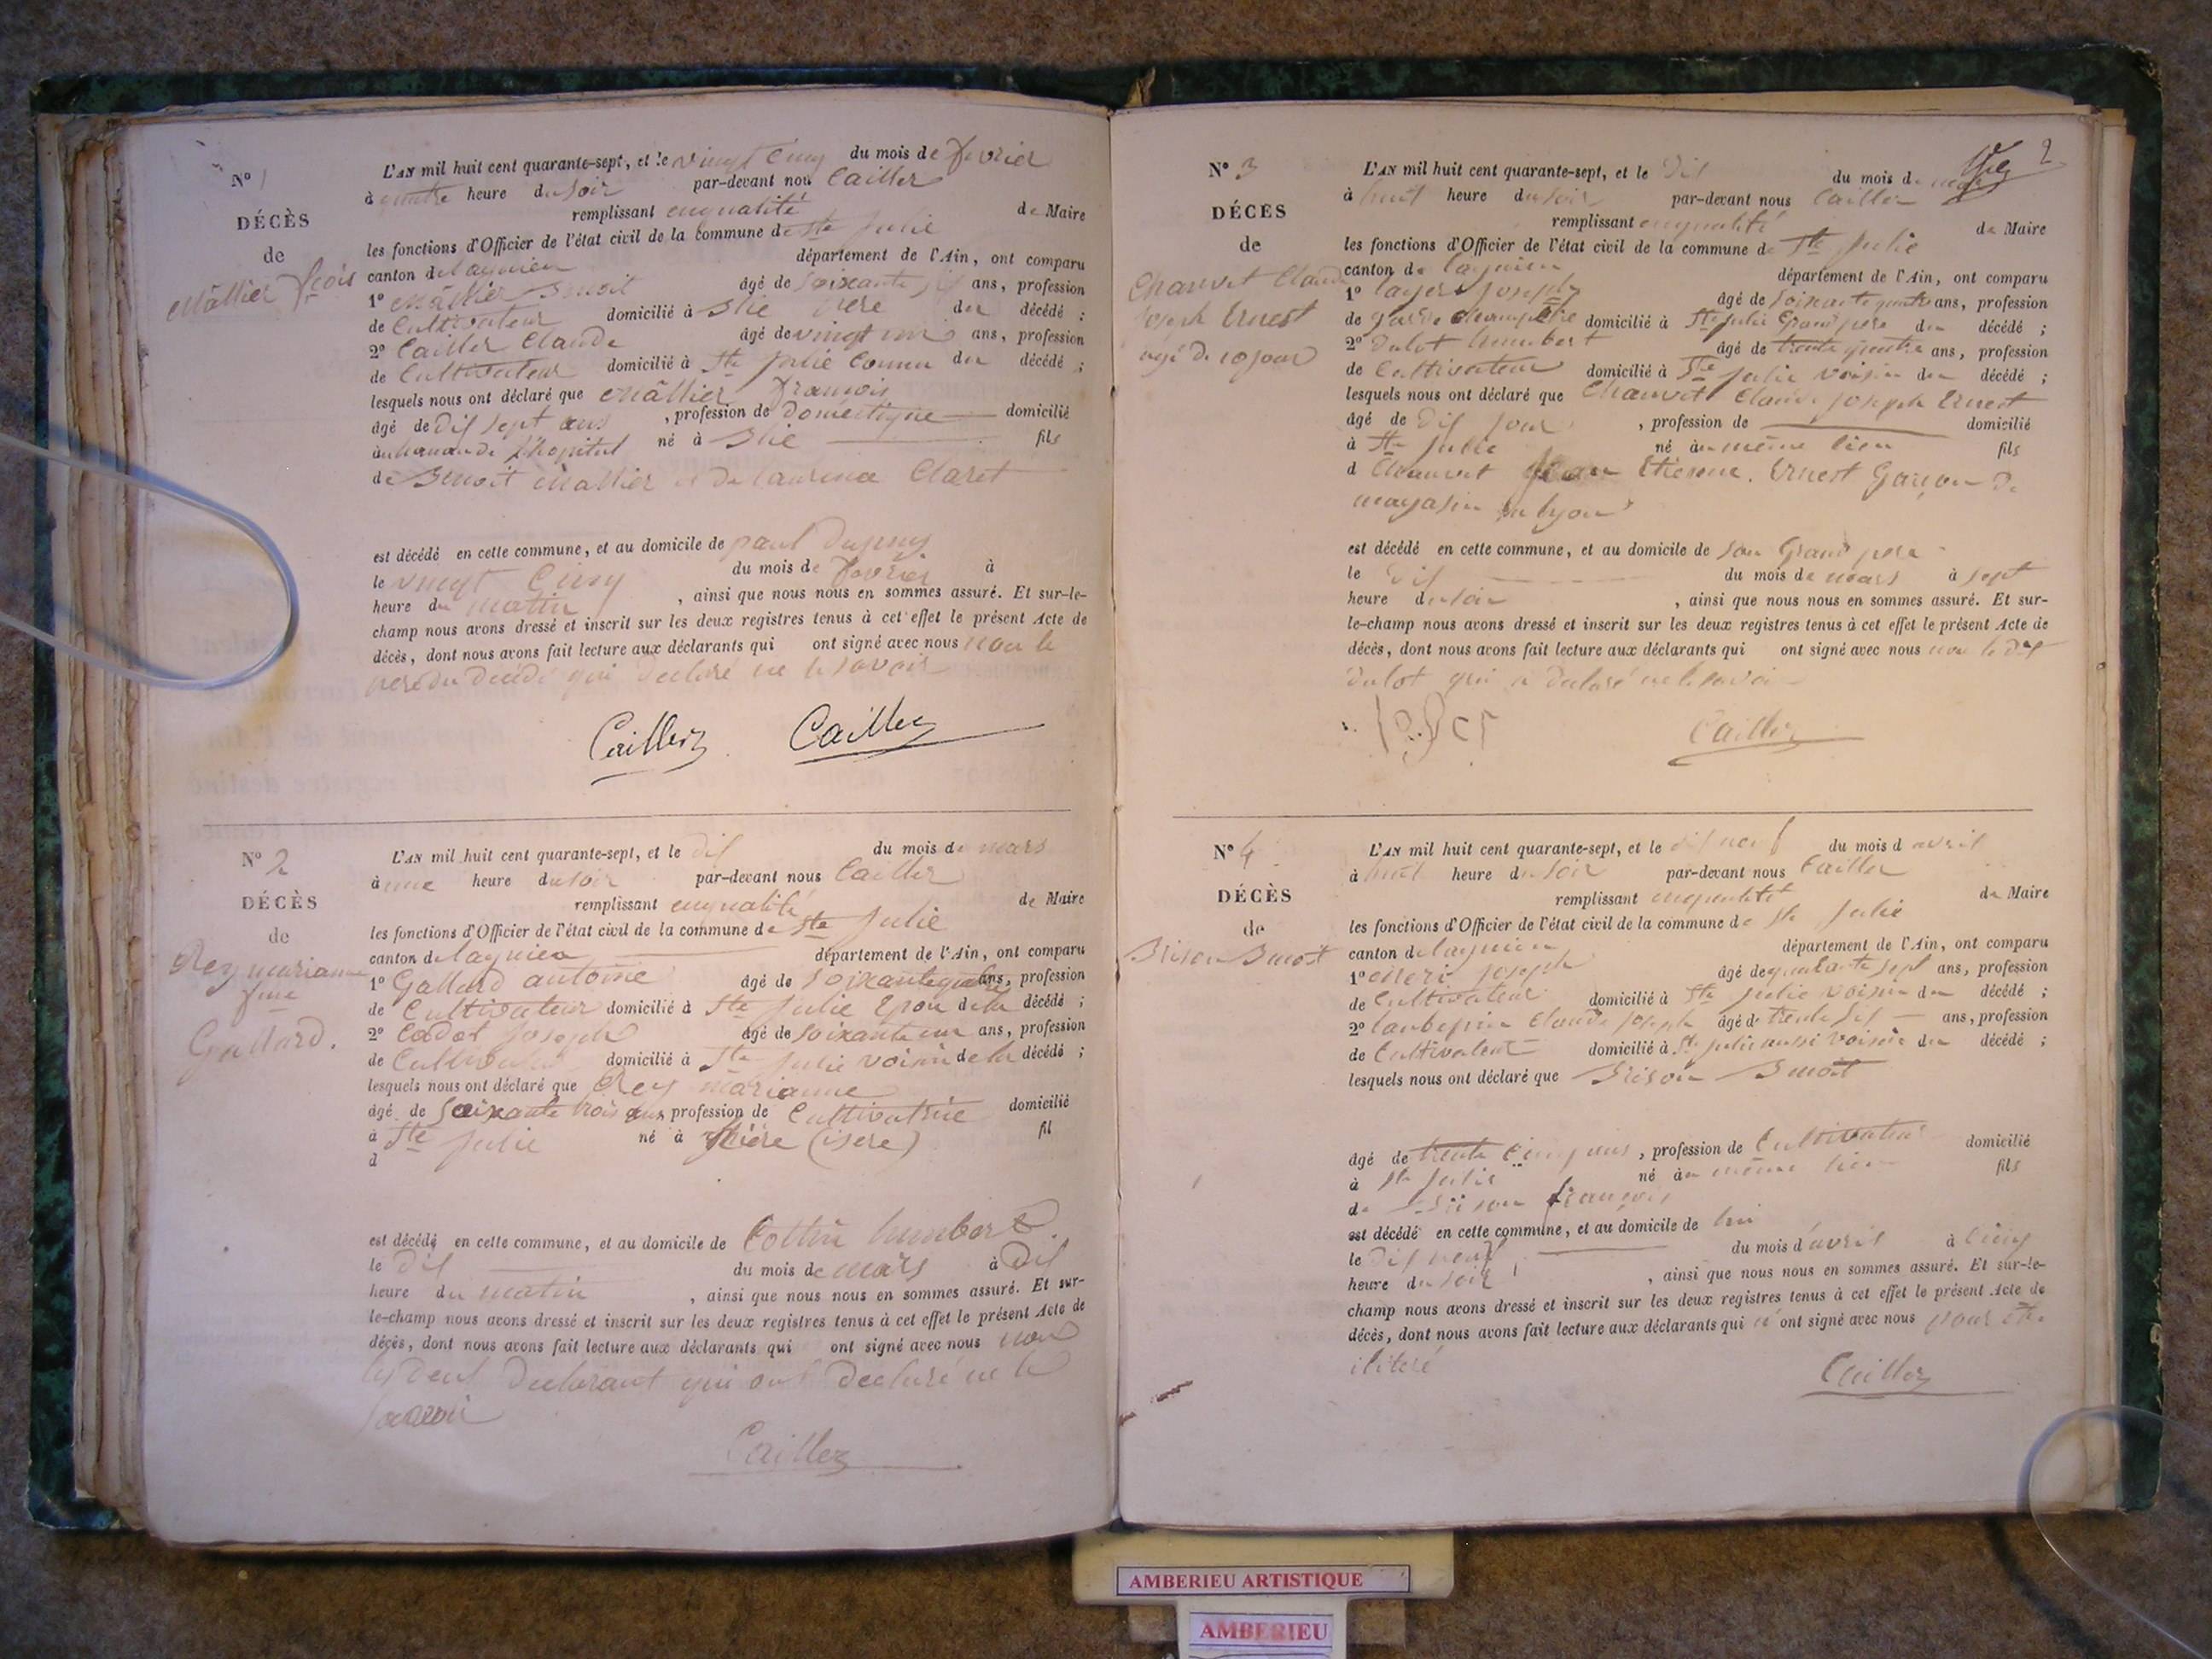 N° 1
DÉCÈS
de
Mâllier fçois
L'AN mil huit cent quarante-sept, et le vingt Cinq du mois de fevrier
à quatre heure du soir par-devant nou Cailler
remplissant enqualité de Maire
les fonctions d'Officier de l'état civil de la commune de Ste Julie
canton de lagnieu département de l'Ain, ont comparu
1° Mâllier Benoit âgé de soixante ans, profession
de Cultivateur domicilié à père du décédé ;
2° Cailler Claude âgé de vingt ans, profession
de Cultivateur domicilié à Ste Julie Connu du décédé ;
lesquels nous ont déclaré que Mâllier francois
âgé de dix sept ans , profession de domestique domicilié
né à fils
de Benoit Mallier et de laurence Claret
est décédé en cette commune, et au domicile de paul Dupuy
le vingt Cinq du mois de fevrier à
heure du matin , ainsi que nous nous en sommes assuré. Et sur-le-
champ nous avons dressé et inscrit sur les deux registres tenus à cet effet le présent Acte de
décès, dont nous avons fait lecture aux déclarants qui ont signé avec nous non le
pere du décédé qui declaré ne le savoir
Cailler Cailler
N° 2
DÉCÈS
de
Rey marianne
fme
Gallard.
L'AN mil huit cent quarante-sept, et le dix du mois de mars
à une heure du soir par-devant nous Cailler
remplissant enqualité de Maire
les fonctions d'Officier de l'état civil de la commune de Ste Julie
canton de lagnieu département de l'Ain, ont comparu
1° Gallard antoine âgé de soixantequatre ans, profession
de Cultivateur domicilié à Ste Julie Epou de la décédé ;
2° Cadot Joseph âgé de soixante un ans, profession
de domicilié à Ste Julie voisin de la décédé ;
lesquels nous ont déclaré que Rey marianne
âgé de soixante trois ans profession de Cultivatrice domicilié
à Ste Julie né à (isere) fil
d
est décédé en cette commune, et au domicile de Cottin humbert
le dix du mois de mars à dix
heure du matin , ainsi que nous nous en sommes assuré. Et sur-
le-champ nous avons dressé et inscrit sur les deux registres tenus à cet effet le présent Acte de
décès, dont nous avons fait lecture aux déclarants qui ont signé avec nous non
les deux declarant qui ont declaré ne le
Cailler
2
N° 3
DÉCÈS
de
Chauvet Claude
Joseph Ernest
agé de 10 jour
L'AN mil huit cent quarante-sept, et le dix du mois de mars
à huit heure du soir par-devant nous Cailler
remplissant enqualité de Maire
les fonctions d'Officier de l'état civil de la commune de Ste Julie
canton de lagnieu département de l'Ain, ont comparu
1° Joseph âgé de soixante quatre ans, profession
de garde champetre domicilié à Ste Julie Grand pere du décédé ;
2° dulot humbert âgé de trente quatre ans, profession
de Cultivateur domicilié à Ste Julie voisin du décédé ;
lesquels nous ont déclaré que Chauvet Claude Joseph Ernest
âgé de dix jour , profession de domicilié
à Ste Julie né au même lieu fils
d Chauvet Etienne. Ernest Garçon de
magasin lyon
est décédé en cette commune, et au domicile de son Grand pere
le dix du mois de mars à sept
heure du soir , ainsi que nous nous en sommes assuré. Et sur-
le-champ nous avons dressé et inscrit sur les deux registres tenus à cet effet le présent Acte de
décès, dont nous avons fait lecture aux déclarants qui ont signé avec nous non le dit
dulot qui a declaré ne le savoir
Cailler
N° 4
DÉCÈS
de
Brison Benoit
L'AN mil huit cent quarante-sept, et le dix neuf du mois d avril
à huit heure du soir par-devant nous Cailler
remplissant enqualité de Maire
les fonctions d'Officier de l'état civil de la commune de Ste Julie
canton de lagnieu département de l'Ain, ont comparu
1° Joseph âgé de quarante sept ans, profession
de Cultivateur domicilié à Ste Julie voisin du décédé ;
2° laubepin Claude Joseph âgé de trente ans, profession
de Cultivateur domicilié à Ste Julie aussi voisin du décédé ;
lesquels nous ont déclaré que Brison Benoit
âgé de trente Cinq ans , profession de Cultivateur domicilié
à Ste Julie né au même lieu fils
de Brison françois
est décédé en cette commune, et au domicile de lui
le dix neuf du mois d'avril à Cinq
heure du soir , ainsi que nous nous en sommes assuré. Et sur-le-
champ nous avons dressé et inscrit sur les deux registres tenus à cet effet le présent Acte de
décès, dont nous avons fait lecture aux déclarants qui ont signé avec nous pour être
ilitéré
Cailler
AMBERIEU ARTISTIQUE
AMBERIEU